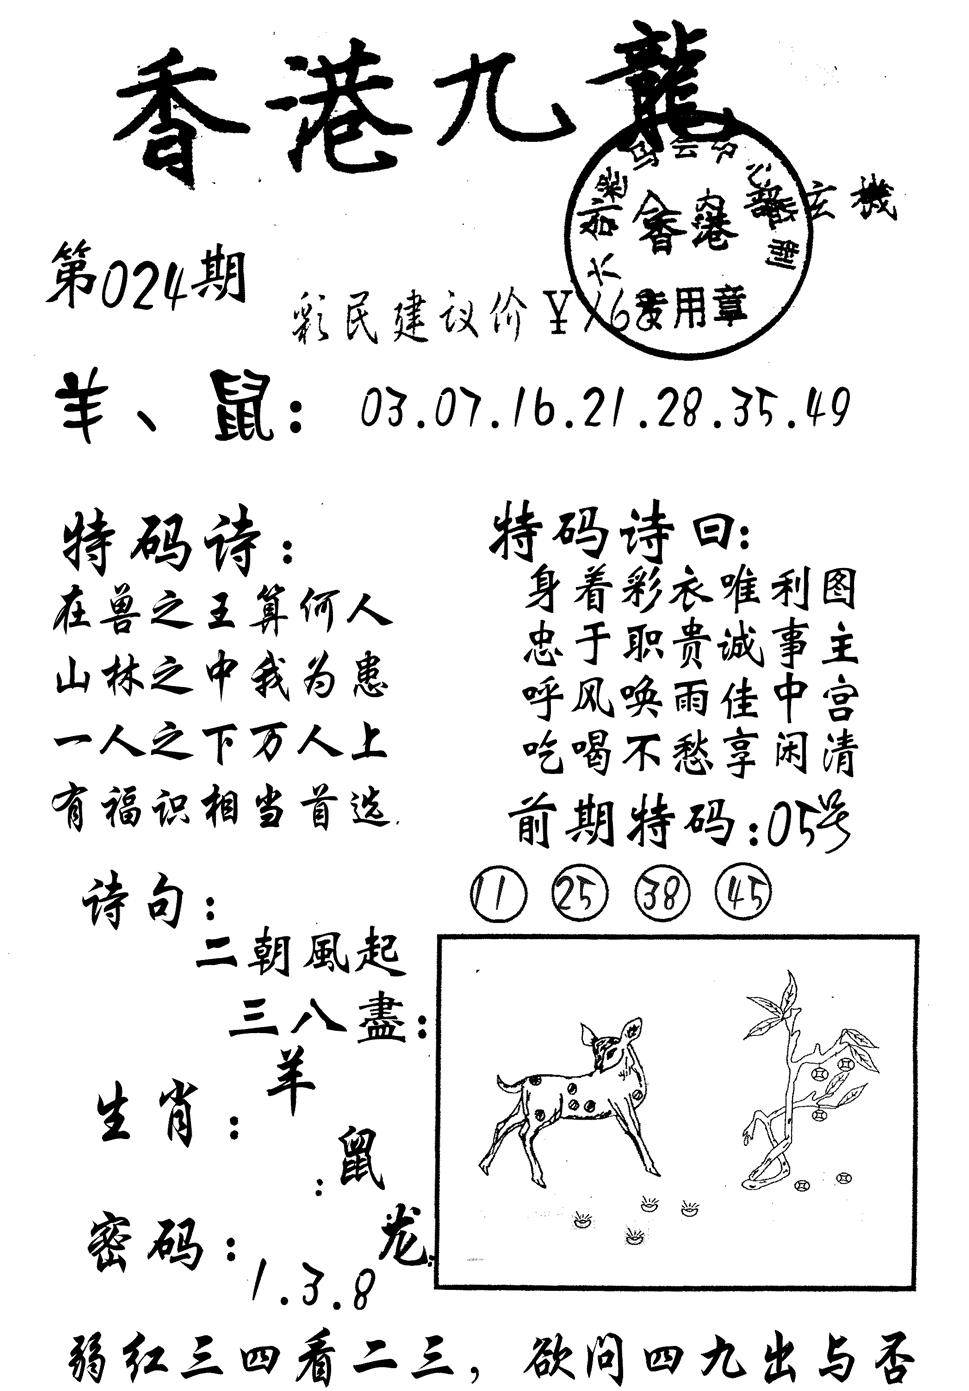 香港九龍
玄機
香港
专用章
第024期
彩民建议价¥168
羊、鼠：03.07.16.21.28.35.49
特码诗：
在兽之王算何人
山林之中我为患
一人之下万人上
有福识相当首选
特码诗曰：
身着彩衣唯利图
忠于职贵诚事主
呼风唤雨佳中宫
吃喝不愁享闲清
前期特码：05号
11 25 38 45
诗句：
二朝風起
三八盡：
生肖：羊
：鼠
龙
密码：1.3.8
弱红三四看二三，欲问四九出与否